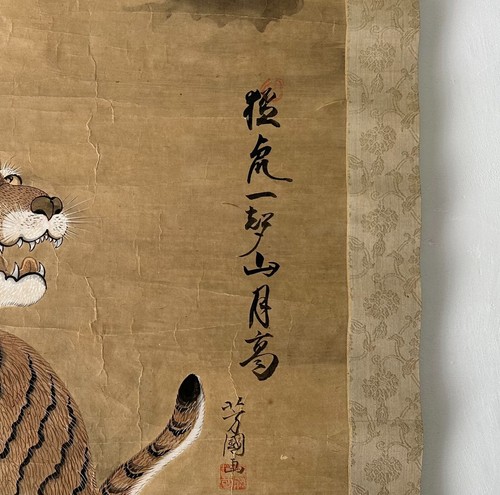 猛虎一声山月高
芳國画